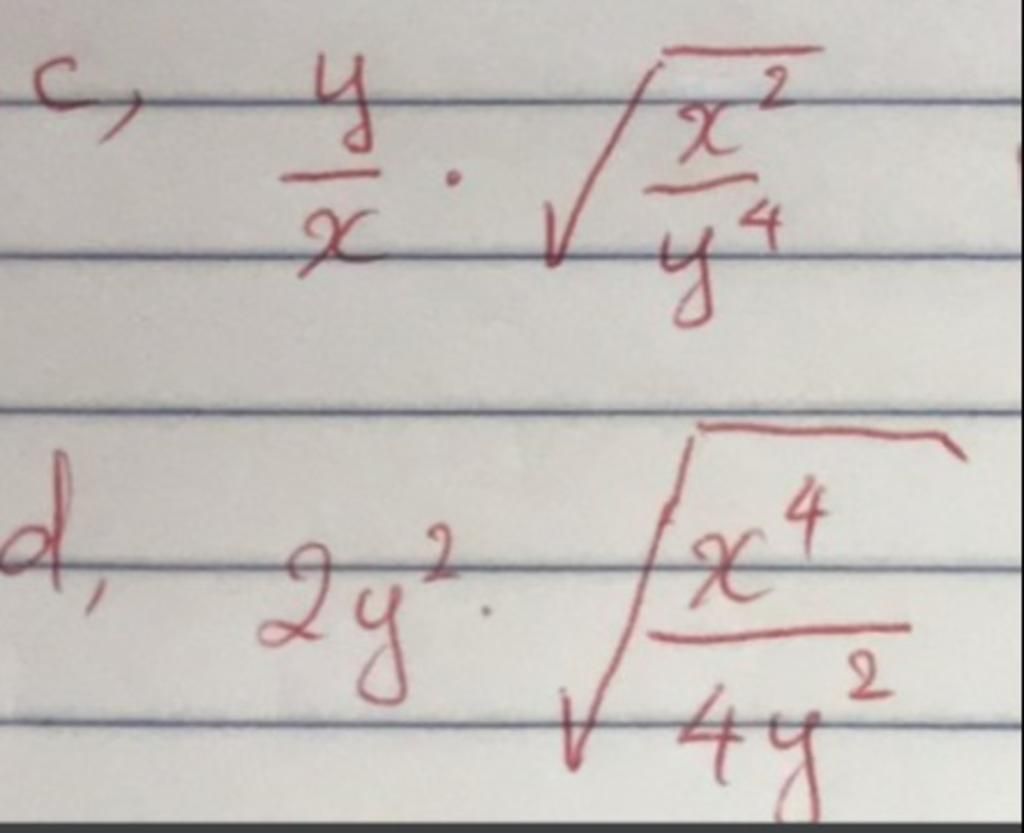 c, y/x · √(x²/y⁴)
d, 2y² · √(x⁴/4y²)